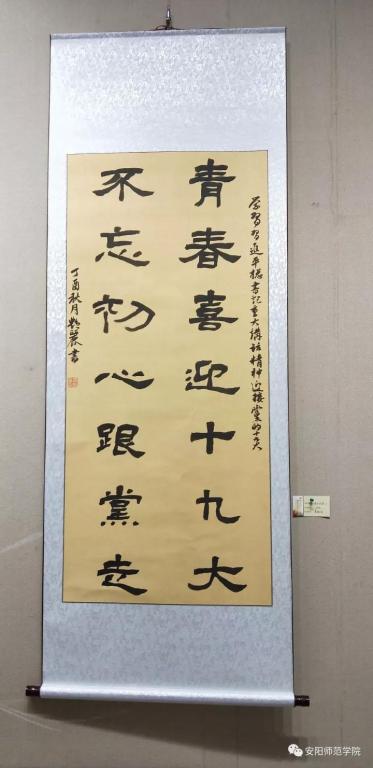 学习习近平总书记重大讲话精神迎接党的十九大
青春喜迎十九大
不忘初心跟黨走
丁酉秋月艷麗書
安阳师范学院